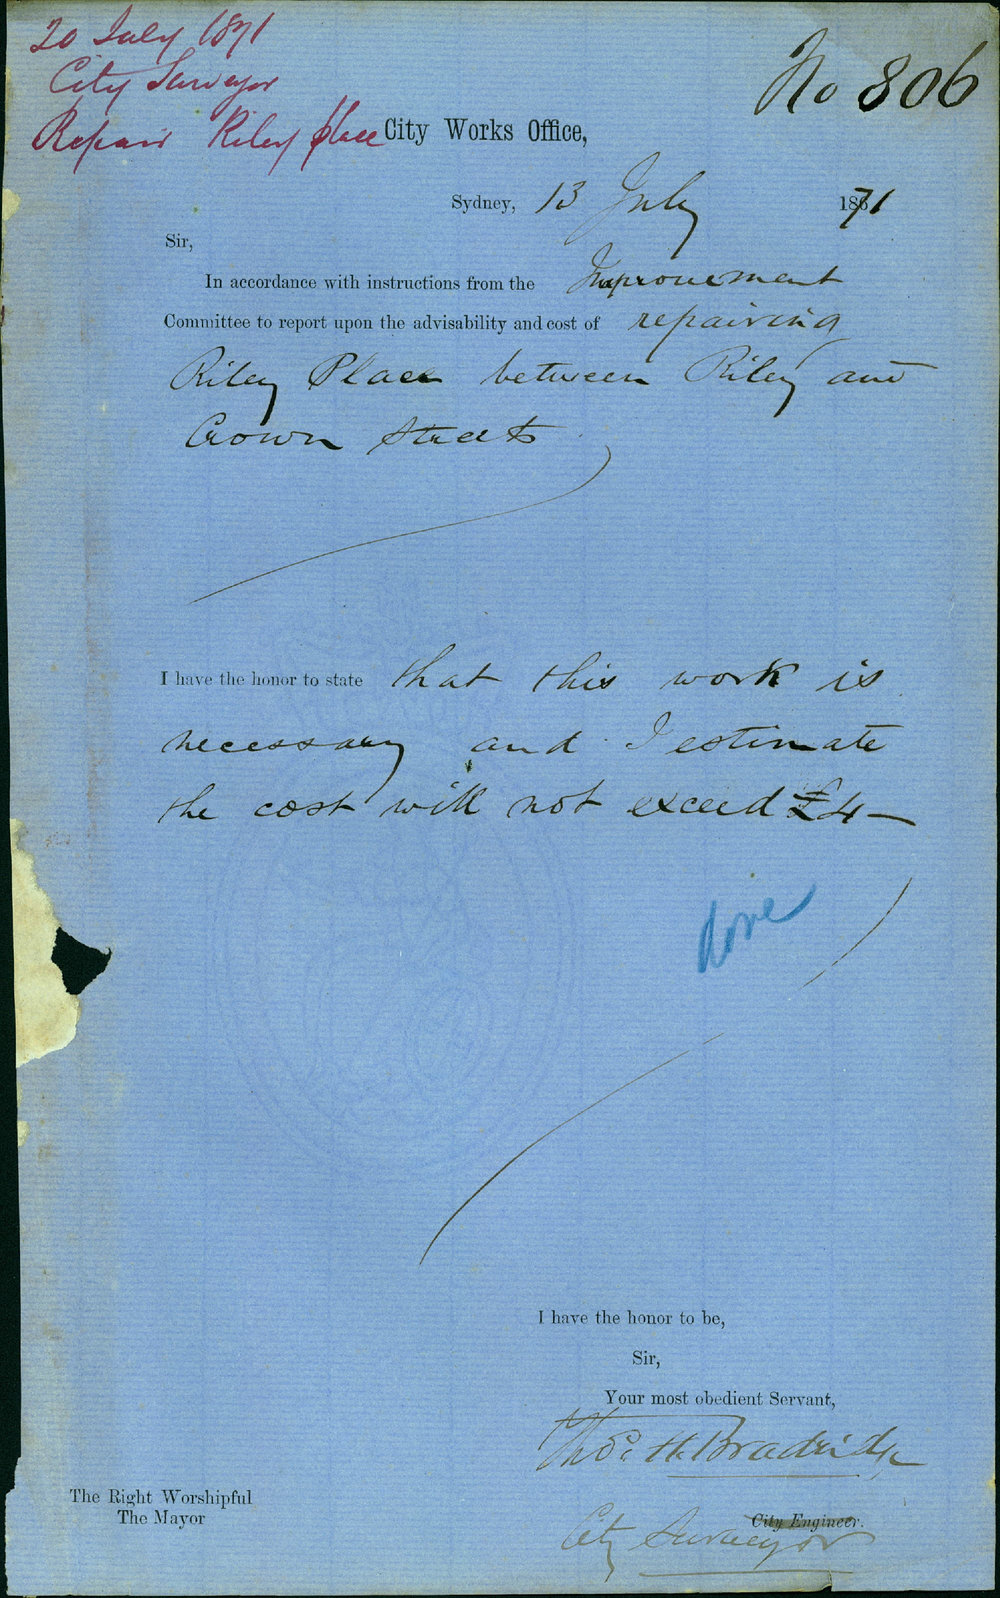 20 July 1871
City Surveyor
Repair Riley place
No 806
City Works Office,
Sydney, 13 July 1871
Sir,
In accordance with instructions from the Improvement
Committee to report upon the advisability and cost of repairing
Riley Place between Riley and
Crown Streets
I have the honor to state that this work is
necessary and I estimate
the cost will not exceed £4-
done
I have the honor to be,
Sir,
Your most obedient Servant,
Thos. H. Bradridge
City Engineer.
City Surveyor
The Right Worshipful
The Mayor